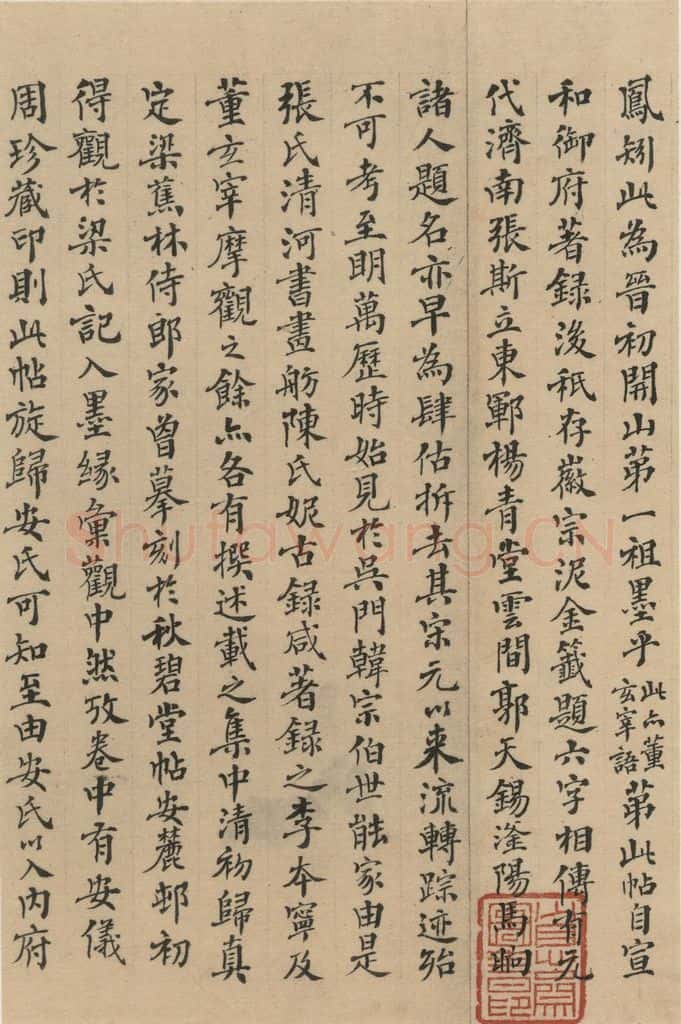 鳳矧此為晉初開山第一祖墨乎此亦董玄宰語第此帖自宣
和御府著錄後秖存徽宗泥金籤題六字相傳有元
代濟南張斯立東鄆楊青堂雲間郭天錫滏陽馬晌
諸人題名亦早為肆估拆去其宋元以来流轉踪迹殆
不可考至明萬歷時始見於吳門韓宗伯世能家由是
張氏清河書畫舫陳氏妮古錄咸著錄之李本寧及
董玄宰摩觀之餘亦各有撰述載之集中清初歸真
定梁蕉林侍郎家曾摹刻於秋碧堂帖安麓邨初
得觀於梁氏記入墨緣彙觀中然攷卷中有安儀
周珍藏印則此帖旋歸安氏可知至由安氏以入內府
Shufawang.CN